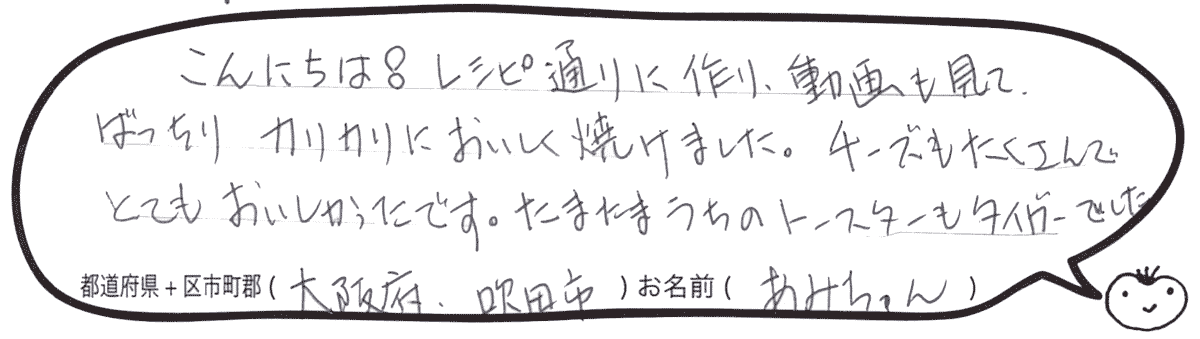 こんにちは。レシピ通りに作り、動画も見て、
ばっちりカリカリにおいしく焼けました。チーズもたくさんで
とてもおいしかったです。たまたまうちのトースターもタイガーでした
都道府県＋区市町郡(大阪府、吹田市)お名前(あみちゃん)